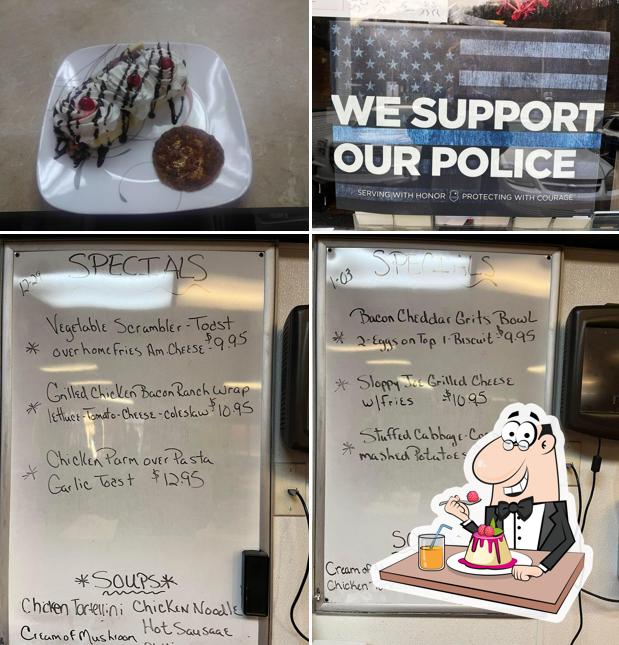 WE SUPPORT
OUR POLICE
SERVING WITH HONOR PROTECTING WITH COURAGE
12-29
SPECIALS
Vegetable Scrambler - Toast
* over homefries Am Cheese - $9.95
Grilled Chicken Bacon Ranch Wrap
* lettuce - Tomato - Cheese - coleslaw $10.95
Chicken Parm over Pasta
* Garlic Toast $12.95
*SOUPS*
Chicken Tortellini Chicken Noodle
Cream of Mushroom Hot Sausage
1-03
SPECIALS
Bacon Cheddar Grits Bowl
* 2-Eggs on Top 1-Biscuit - $9.95
* Sloppy Joe Grilled Cheese
w/fries $10.95
Stuffed Cabbage -
* mashed Potatoes
Cream of
Chicken